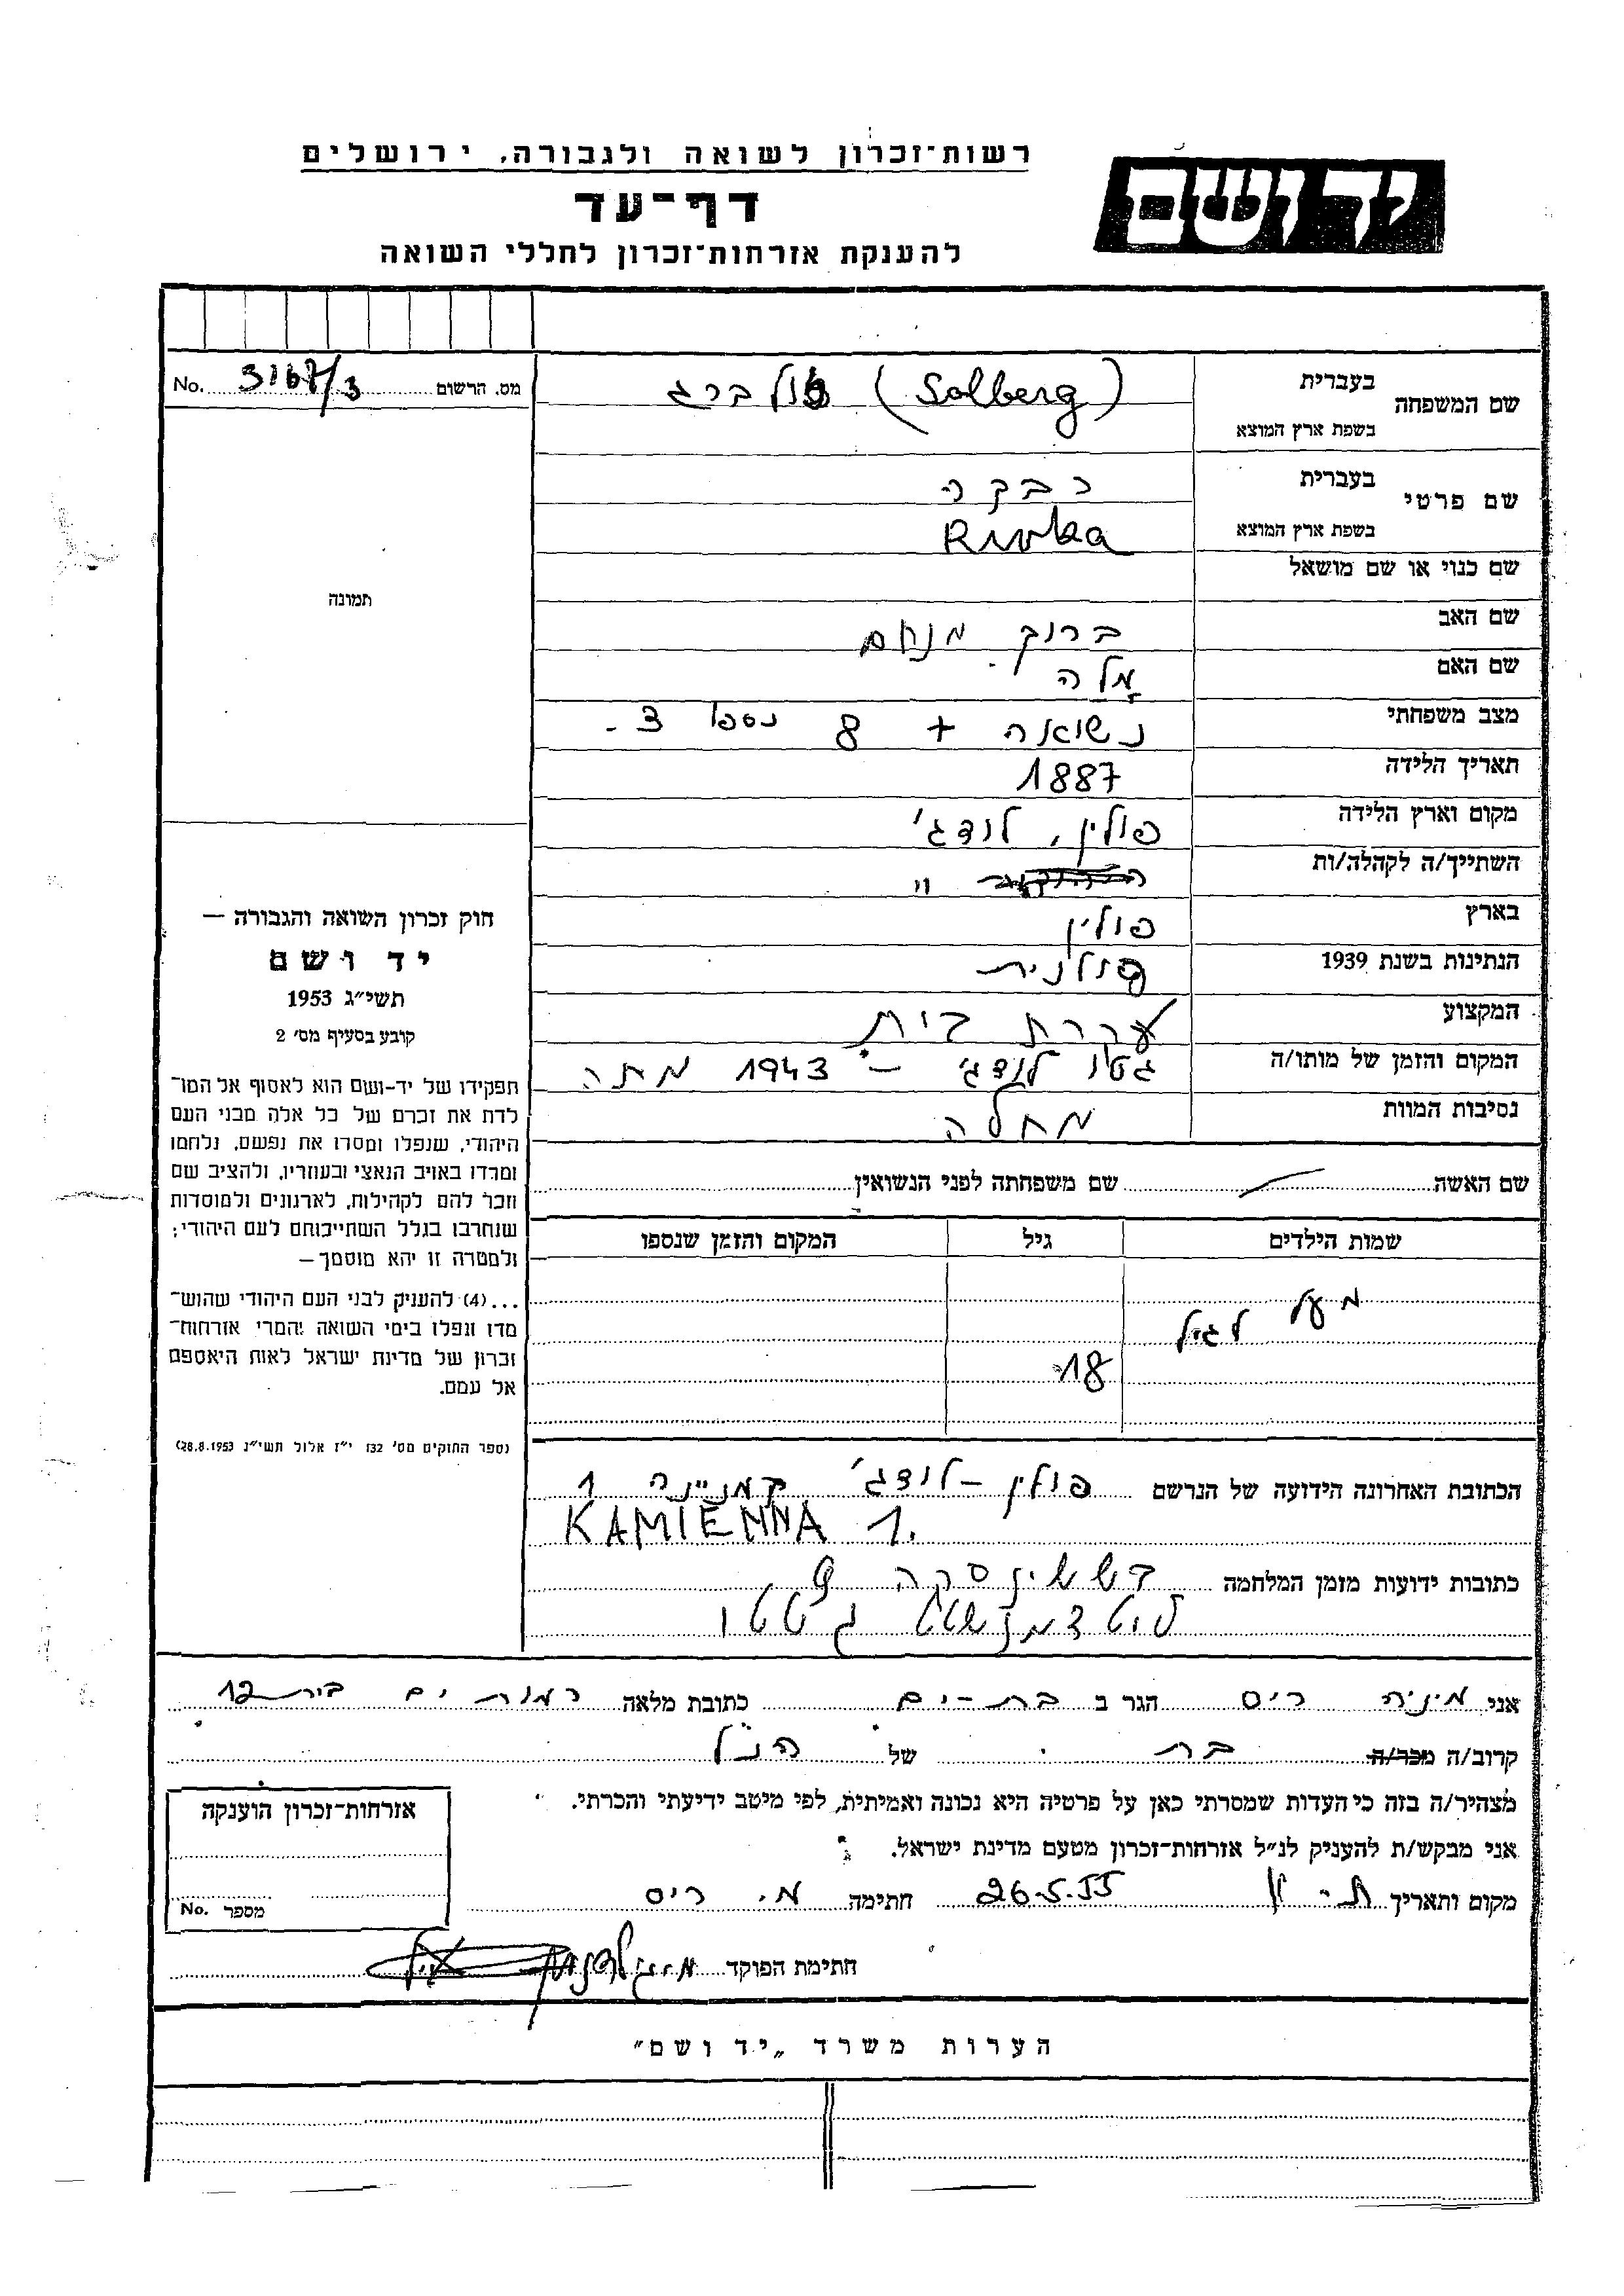 רשות־זכרון לשואה ולגבורה, ירושלים
יד ושם
דף־עד
להענקת אזרחות־זכרון לחללי השואה
מס. הרשום 3167/3 No.
שם המשפחה בעברית (Solberg) סולברג
בשפת ארץ המוצא
שם פרטי בעברית רבקה
בשפת ארץ המוצא Rivka
שם כנוי או שם מושאל
שם האב ברוך מנחם
שם האם מלה
מצב משפחתי נשואה + 8 נספו 3 -
תאריך הלידה 1887
מקום וארץ הלידה פולין, לודג'
השתייך/ה לקהלה/ות "
בארץ פולין
הנתינות בשנת 1939 פולנית
המקצוע עקרת בית
המקום והזמן של מותו/ה גטו לודג' - 1943 מתה
נסיבות המוות מחלה
תמונה
חוק זכרון השואה והגבורה —
יד ושם
תשי״ג 1953
קובע בסעיף מס׳ 2
תפקידו של יד-ושם הוא לאסוף אל המו־
לדת את זכרם של כל אלה מבני העם
היהודי, שנפלו ומסרו את נפשם, נלחמו
ומרדו באויב הנאצי ובעוזריו, ולהציב שם
וזכר להם לקהילות, לארגונים ולמוסדות
שנחרבו בגלל השתייכותם לעם היהודי;
ולמטרה זו יהא מוסמך —
...(4) להעניק לבני העם היהודי שהוש־
מדו ונפלו בימי השואה והמרי אזרחות־
זכרון של מדינת ישראל לאות היאספם
אל עמם.
(ספר החוקים מס׳ 132 י״ז אלול תשי״ג 28.8.1953)
שם האשה שם משפחתה לפני הנשואין
שמות הילדים גיל המקום והזמן שנספו
מעל
לגיל
18
הכתובת האחרונה הידועה של הנרשם פולין - לודג' קמניינה 1
KAMIENNA 1.
כתובות ידועות מזמן המלחמה 9
גיטטו
אני מיניה ריס הגר ב בת-ים כתובת מלאה רמת ים בית 12
קרוב/ה מכר/ה בת של הנ"ל
מצהיר/ה בזה כי העדות שמסרתי כאן על פרטיה היא נכונה ואמיתית, לפי מיטב ידיעתי והכרתי.
אני מבקש/ת להעניק לנ״ל אזרחות־זכרון מטעם מדינת ישראל.
מקום ותאריך 26.5.55 חתימה מ. ריס
חתימת הפוקד
אזרחות־זכרון הוענקה
מספר No.
הערות משרד „יד ושם״